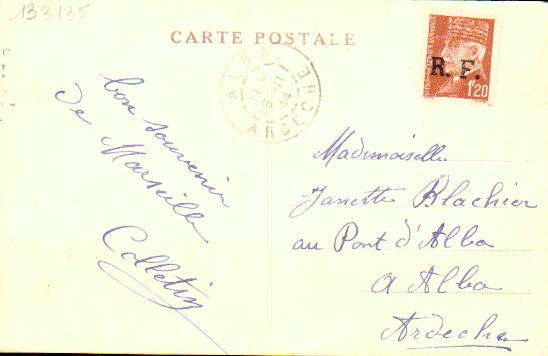 133135
CARTE POSTALE
ALBA
ARDECHE
R. F.
1f20
bon souvenir
de Marseille
Colletin
Mademoiselle
Janette Blachier
au Pont d'Alba
a Alba
Ardeche